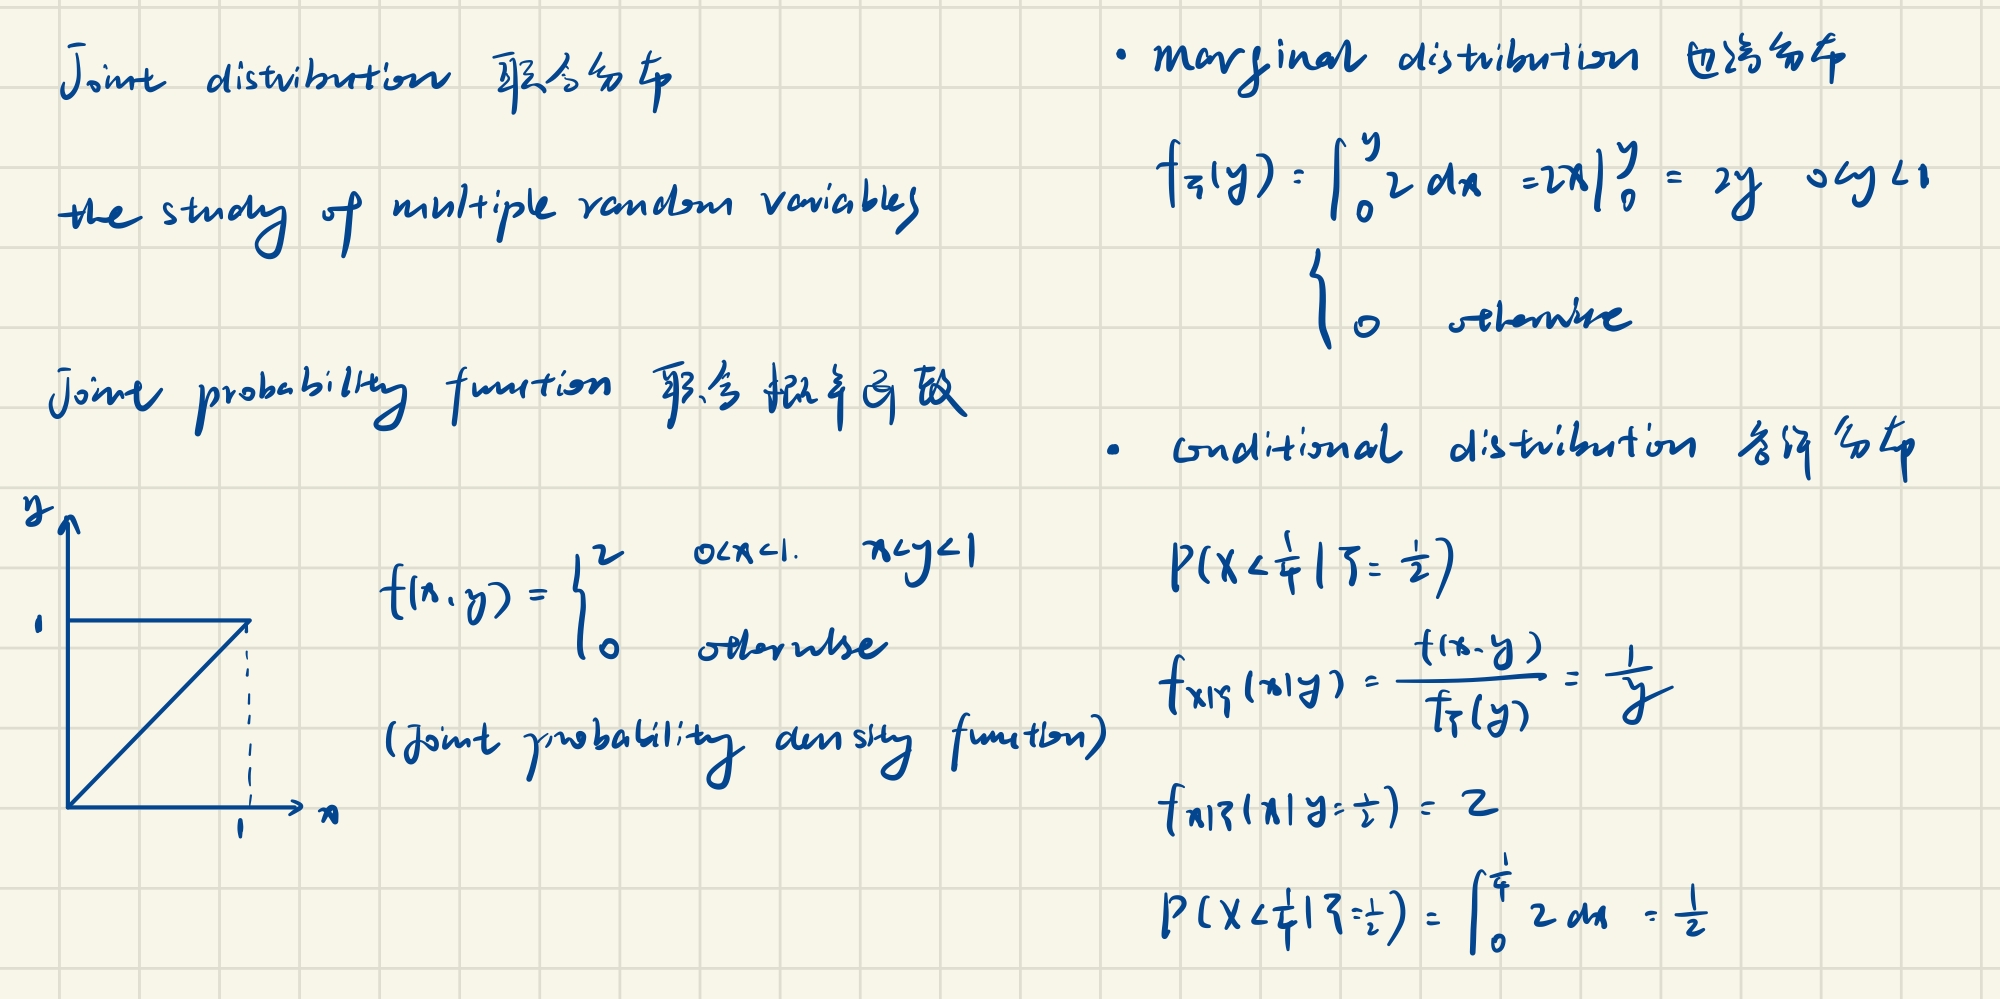 Joint distribution 联合分布
the study of multiple random variables
Joint probability function 联合概率函数
y
1
1
x
f(x,y) = { 2 0<x<1. x<y<1
0 otherwise
(Joint probability density function)
• marginal distribution 边缘分布
f_Y(y) = ∫_0^y 2 dx = 2x|_0^y = 2y 0<y<1
{ 0 otherwise
• conditional distribution 条件分布
P(X < 1/4 | Y = 1/2)
f_X|Y(x|y) = f(x,y)/f_Y(y) = 1/y
f_X|Y(x|y=1/2) = 2
P(X < 1/4 | Y = 1/2) = ∫_0^{1/4} 2 dx = 1/2